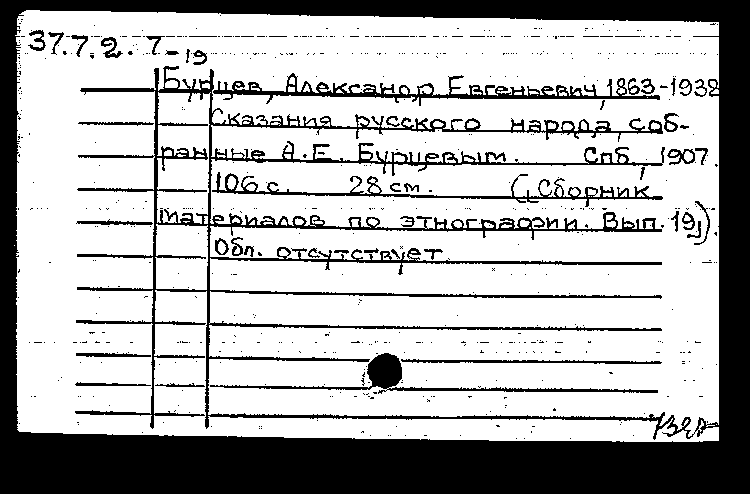 37.7.2.7-19
Бурцев, Александр Евгеньевич, 1863-1938
Сказания русского народа, соб-
ранные А.Е. Бурцевым. Спб, 1907.
106 с. 28 см. („Сборник
материалов по этнографии. Вып. 19„).
Обл. отсутствует